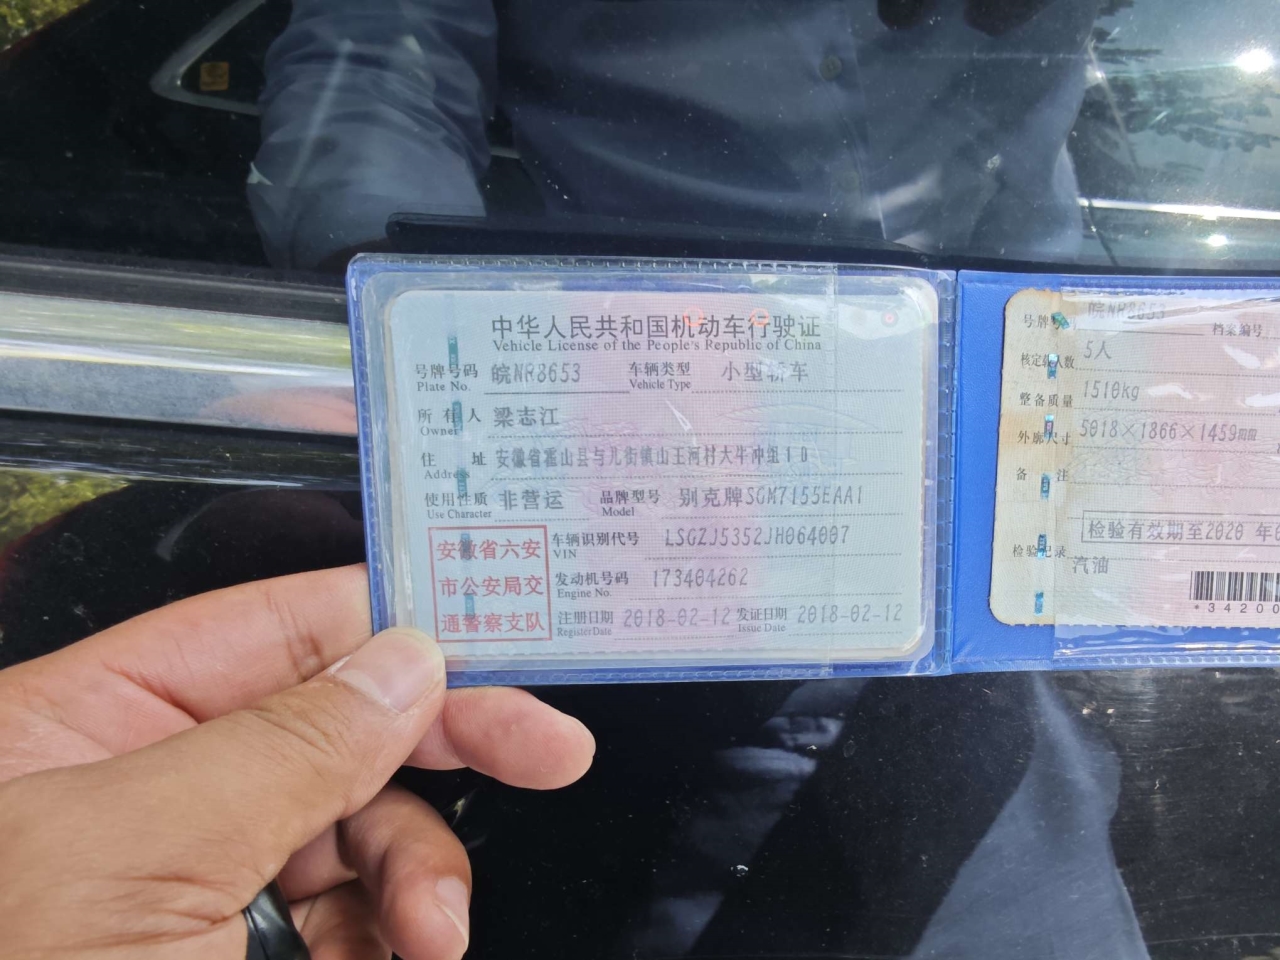 中华人民共和国机动车行驶证
Vehicle License of the People's Republic of China
号牌号码 皖NR8653 车辆类型 小型轿车
Plate No. Vehicle Type
所有人 梁志江
Owner
住址 安徽省霍山县与儿街镇山王河村大牛冲组10
Address
使用性质 非营运 品牌型号 别克牌SGM7155EAA1
Use Character Model
安徽省六安
市公安局交
通警察支队
车辆识别代号 LSGZJ5352JH064007
VIN
发动机号码 173404262
Engine No.
注册日期 2018-02-12 发证日期 2018-02-12
Register Date Issue Date
号牌号 皖NR8653 档案编号
核定载人数 5人
整备质量 1510kg
外廓尺寸 5018×1866×1459mm
备注
检验有效期至2020 年
检验记录
汽油
*34200